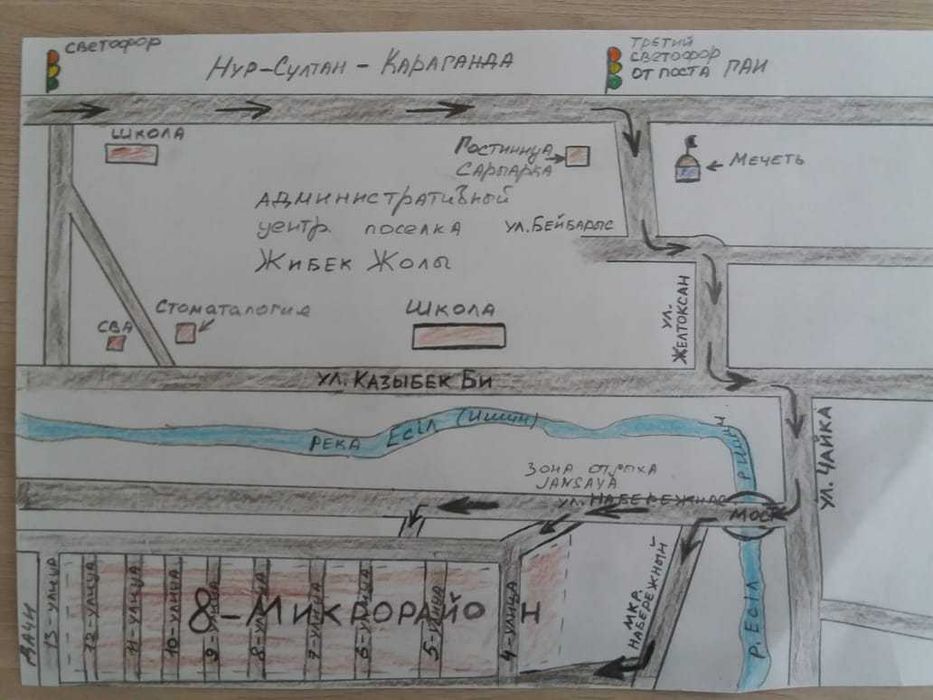 СВЕТОФОР
НУР-СУЛТАН - КАРАГАНДА
ТРЕТИЙ
СВЕТОФОР
ОТ ПОСТА ГАИ
ШКОЛА
ГОСТИННИЦА
САРЫАРКА
МЕЧЕТЬ
АДМИНИСТРАТИВНОЙ
ЦЕНТР ПОСЕЛКА
ЖИБЕК ЖОЛЫ
УЛ. БЕЙБАРЫС
СВА
СТОМАТАЛОГИЯ
ШКОЛА
УЛ. ЖЕЛТОКСАН
УЛ. КАЗЫБЕК БИ
РЕКА ЕСІЛ (ИШИМ)
Р. ИШИМ
УЛ. ЧАЙКА
ЗОНА ОТДЫХА
JANSAYA
УЛ. НАБЕРЕЖНАЯ
МОСТ
МКР. НАБЕРЕЖНЫЙ
Р. ЕСІЛ
8-МИКРОРАЙОН
ДАЧИ
13-УЛИЦА
12-УЛИЦА
11-УЛИЦА
10-УЛИЦА
9-УЛИЦА
8-УЛИЦА
7-УЛИЦА
6-УЛИЦА
5-УЛИЦА
4-УЛИЦА